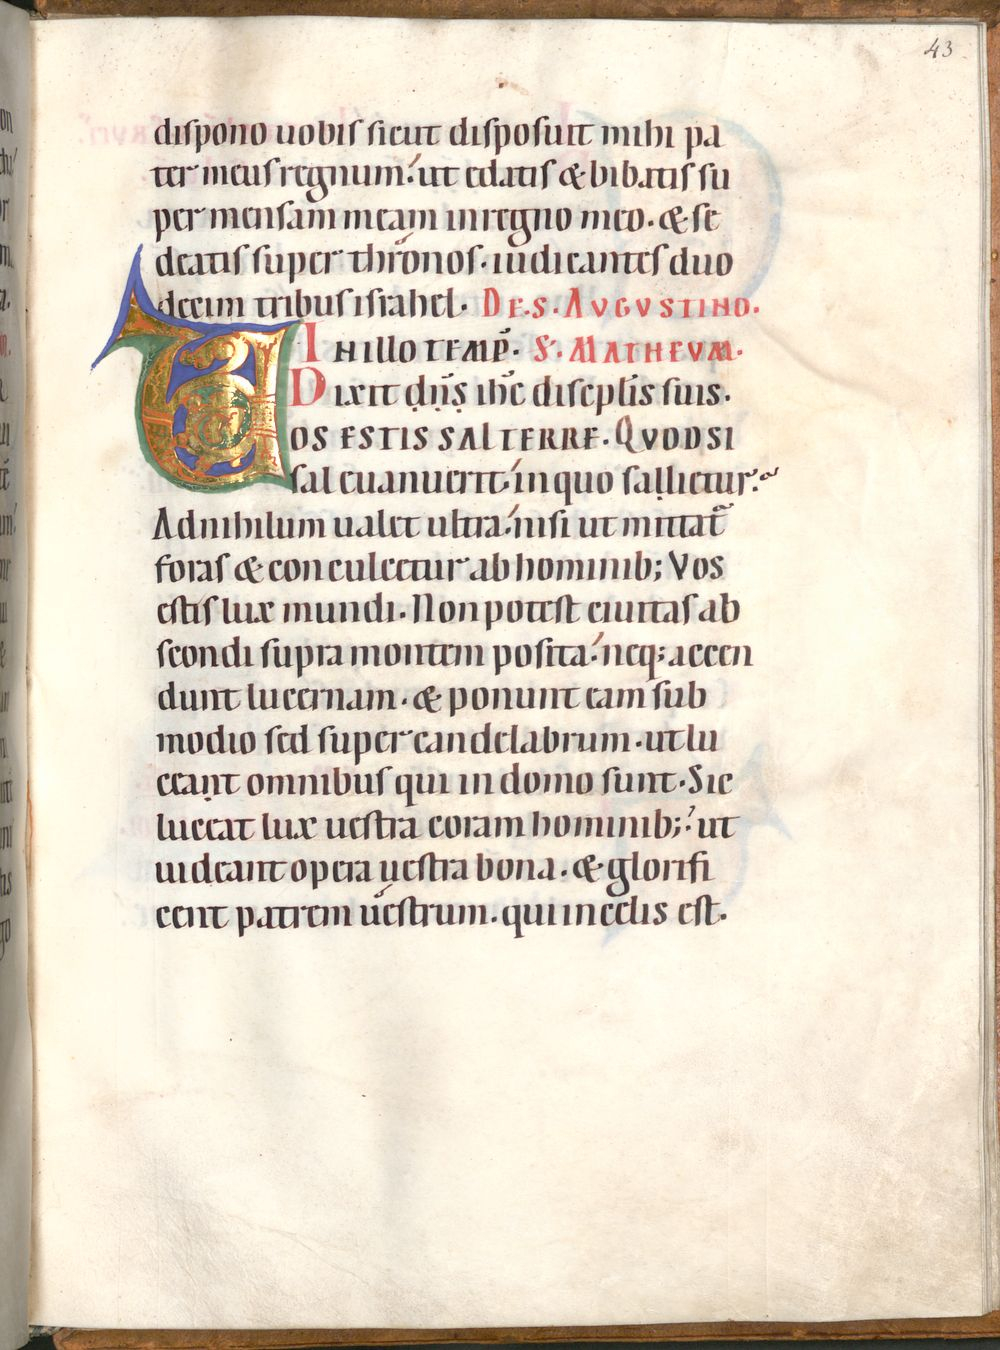 43
dispono uobis sicut disposuit mihi pa
ter meus regnum. ut edatis & bibatis su
per mensam meam in regno meo. & se
deatis super thronos. iudicantes duo
decim tribus israhel. DE S. AVGVSTINO.
IN ILLO TEMP̄. S. MATHEVM.
Dixit dn̄s ihc̄ discipl̄is suis.
VOS ESTIS SAL TERRE. QVODSI
sal euanuerit. in quo sallietur.
Ad nihilum ualet ultra. nisi ut mittat᷑
foras & conculcetur ab hominib; Vos
estis lux mundi. Non potest ciuitas ab
scondi supra montem posita. neq; accen
dunt lucernam. & ponunt eam sub
modio sed super candelabrum. ut lu
ceant omnibus qui in domo sunt. Sic
luceat lux uestra coram hominib; ut
uideant opera uestra bona. & glorifi
cent patrem uestrum. qui in celis est.